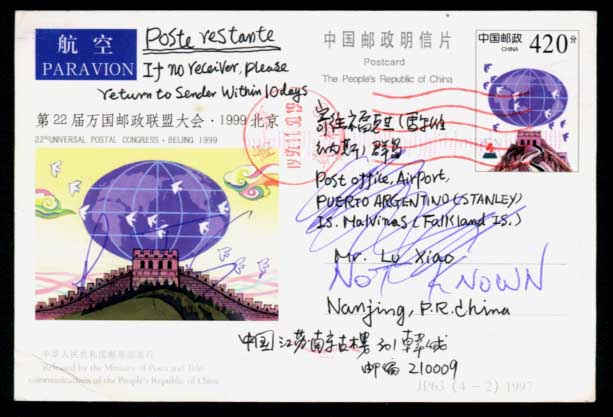 航空
PARAVION
Poste restante
If no receiver, please
return to Sender Within 10 days
第22届万国邮政联盟大会·1999 北京
22ND UNIVERSAL POSTAL CONGRESS·BEIJING 1999
中国邮政明信片
Postcard
The People's Republic of China
中国邮政
CHINA
420分
寄往福克兰
群岛
Post office, Airport,
PUERTO ARGENTINO (STANLEY)
Is. Malvinas (Falkland Is.)
Mr. Lu Xiao
NOT KNOWN
Nanjing, P.R. China
中国江苏南京
301
邮编 210009
中华人民共和国邮电部发行
Released by the Ministry of Posts and Tele-
communications of the People's Republic of China
JP63 (4-2) 1997